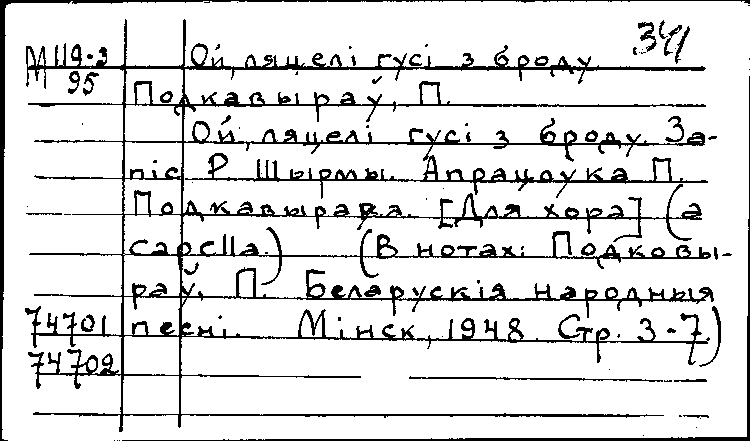 341
М 119-3 Ой, ляцелі гусі з броду
95
Подкавыраў, П.
Ой, ляцелі гусі з броду. За-
піс Р. Шырмы. Апрацоўка П.
Подкавырава. [Для хора] (a
capella.) (В нотах: Подковы-
раў, П. Беларускія народныя
74701 песні. Мінск, 1948. Стр. 3-7.)
74702